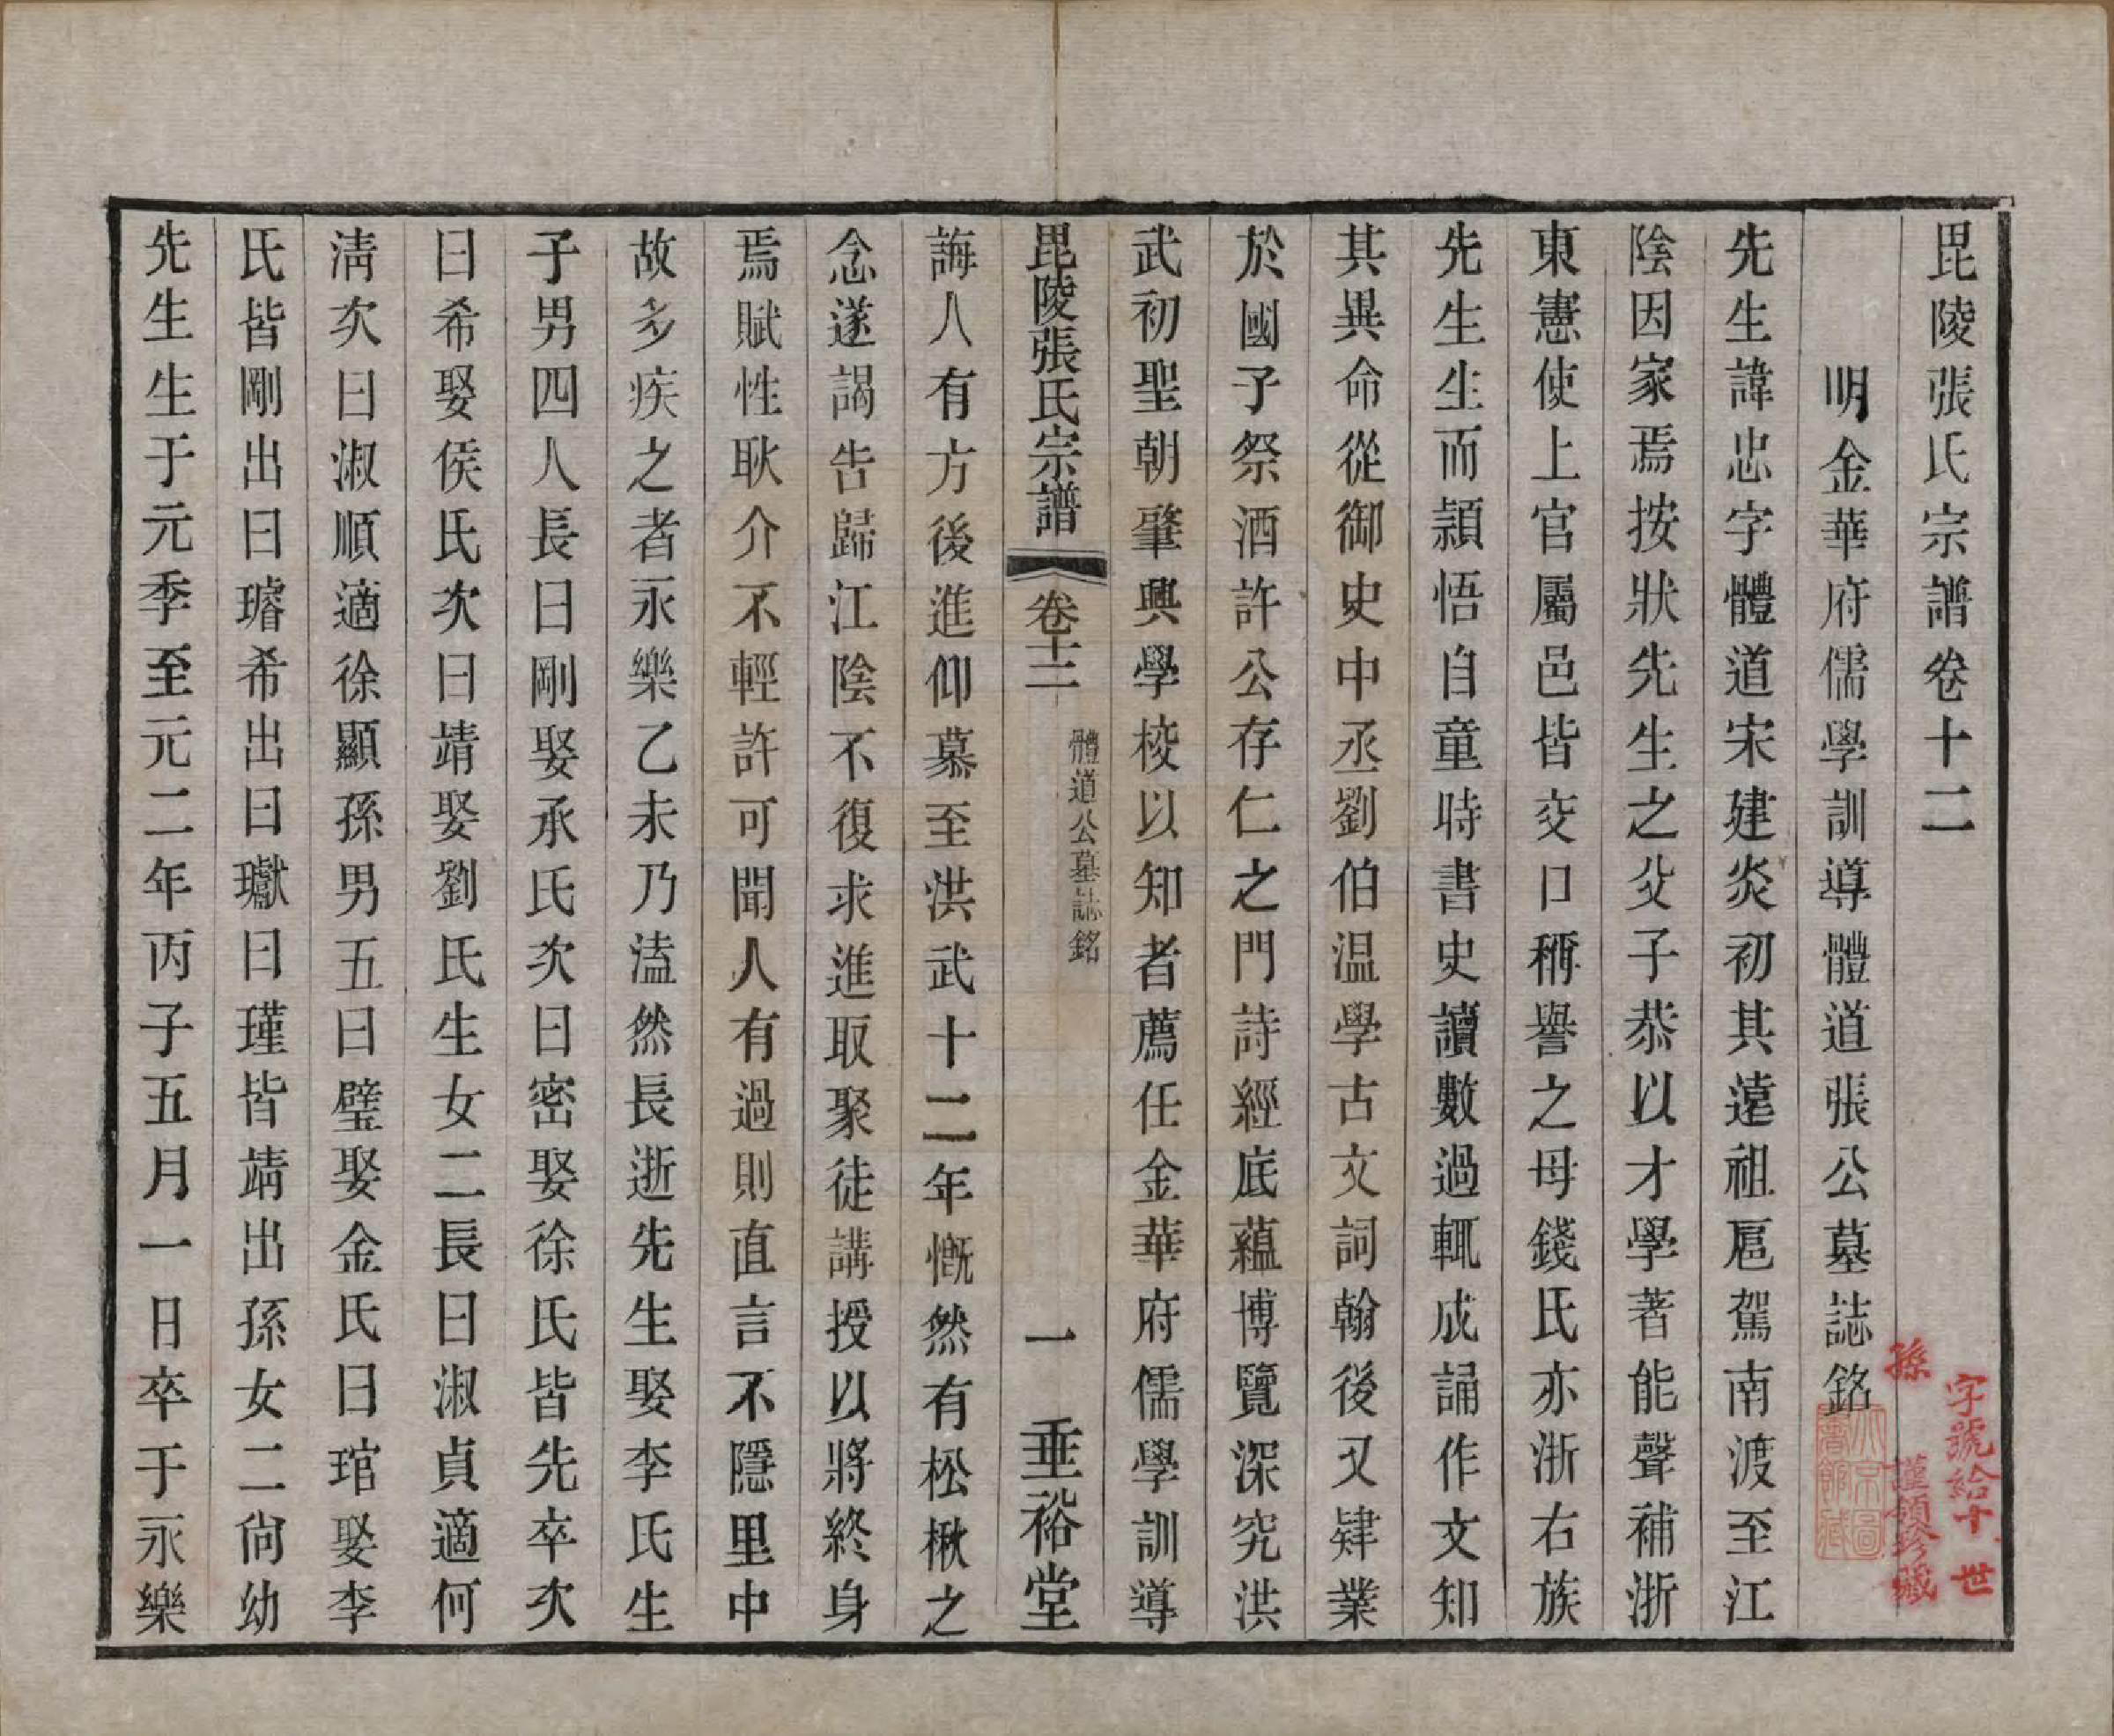 毘陵張氏宗譜卷十二
明金華府儒學訓導體道張公墓誌銘
先生諱忠字體道宋建炎初其遠祖扈駕南渡至江
陰因家焉按狀先生之父子恭以才學著能聲補浙
東憲使上官屬邑皆交口稱譽之母錢氏亦浙右族
先生生而頴悟自童時書史讀數過輒成誦作文知
其異命從御史中丞劉伯温學古文詞翰後又肄業
於國子祭酒許公存仁之門詩經底蘊博覽深究洪
武初聖朝肇興學校以知者薦任金華府儒學訓導
毘陵張氏宗譜 卷十二 體道公墓誌銘 一 垂裕堂
誨人有方後進仰慕至洪武十二年慨然有松楸之
念遂謁告歸江陰不復求進取聚徒講授以將終身
焉賦性耿介不輕許可聞人有過則直言不隱里中
故多疾之者永樂乙未乃溘然長逝先生娶李氏生
子男四人長曰剛娶承氏次曰密娶徐氏皆先卒次
曰希娶侯氏次曰靖娶劉氏生女二長曰淑貞適何
淸次曰淑順適徐顯孫男五曰璧娶金氏曰琯娶李
氏皆剛出曰璿希出曰瓛曰瑾皆靖出孫女二尙幼
先生生于元季至元二年丙子五月一日卒于永樂
字號給十世
孫 謹領珍藏